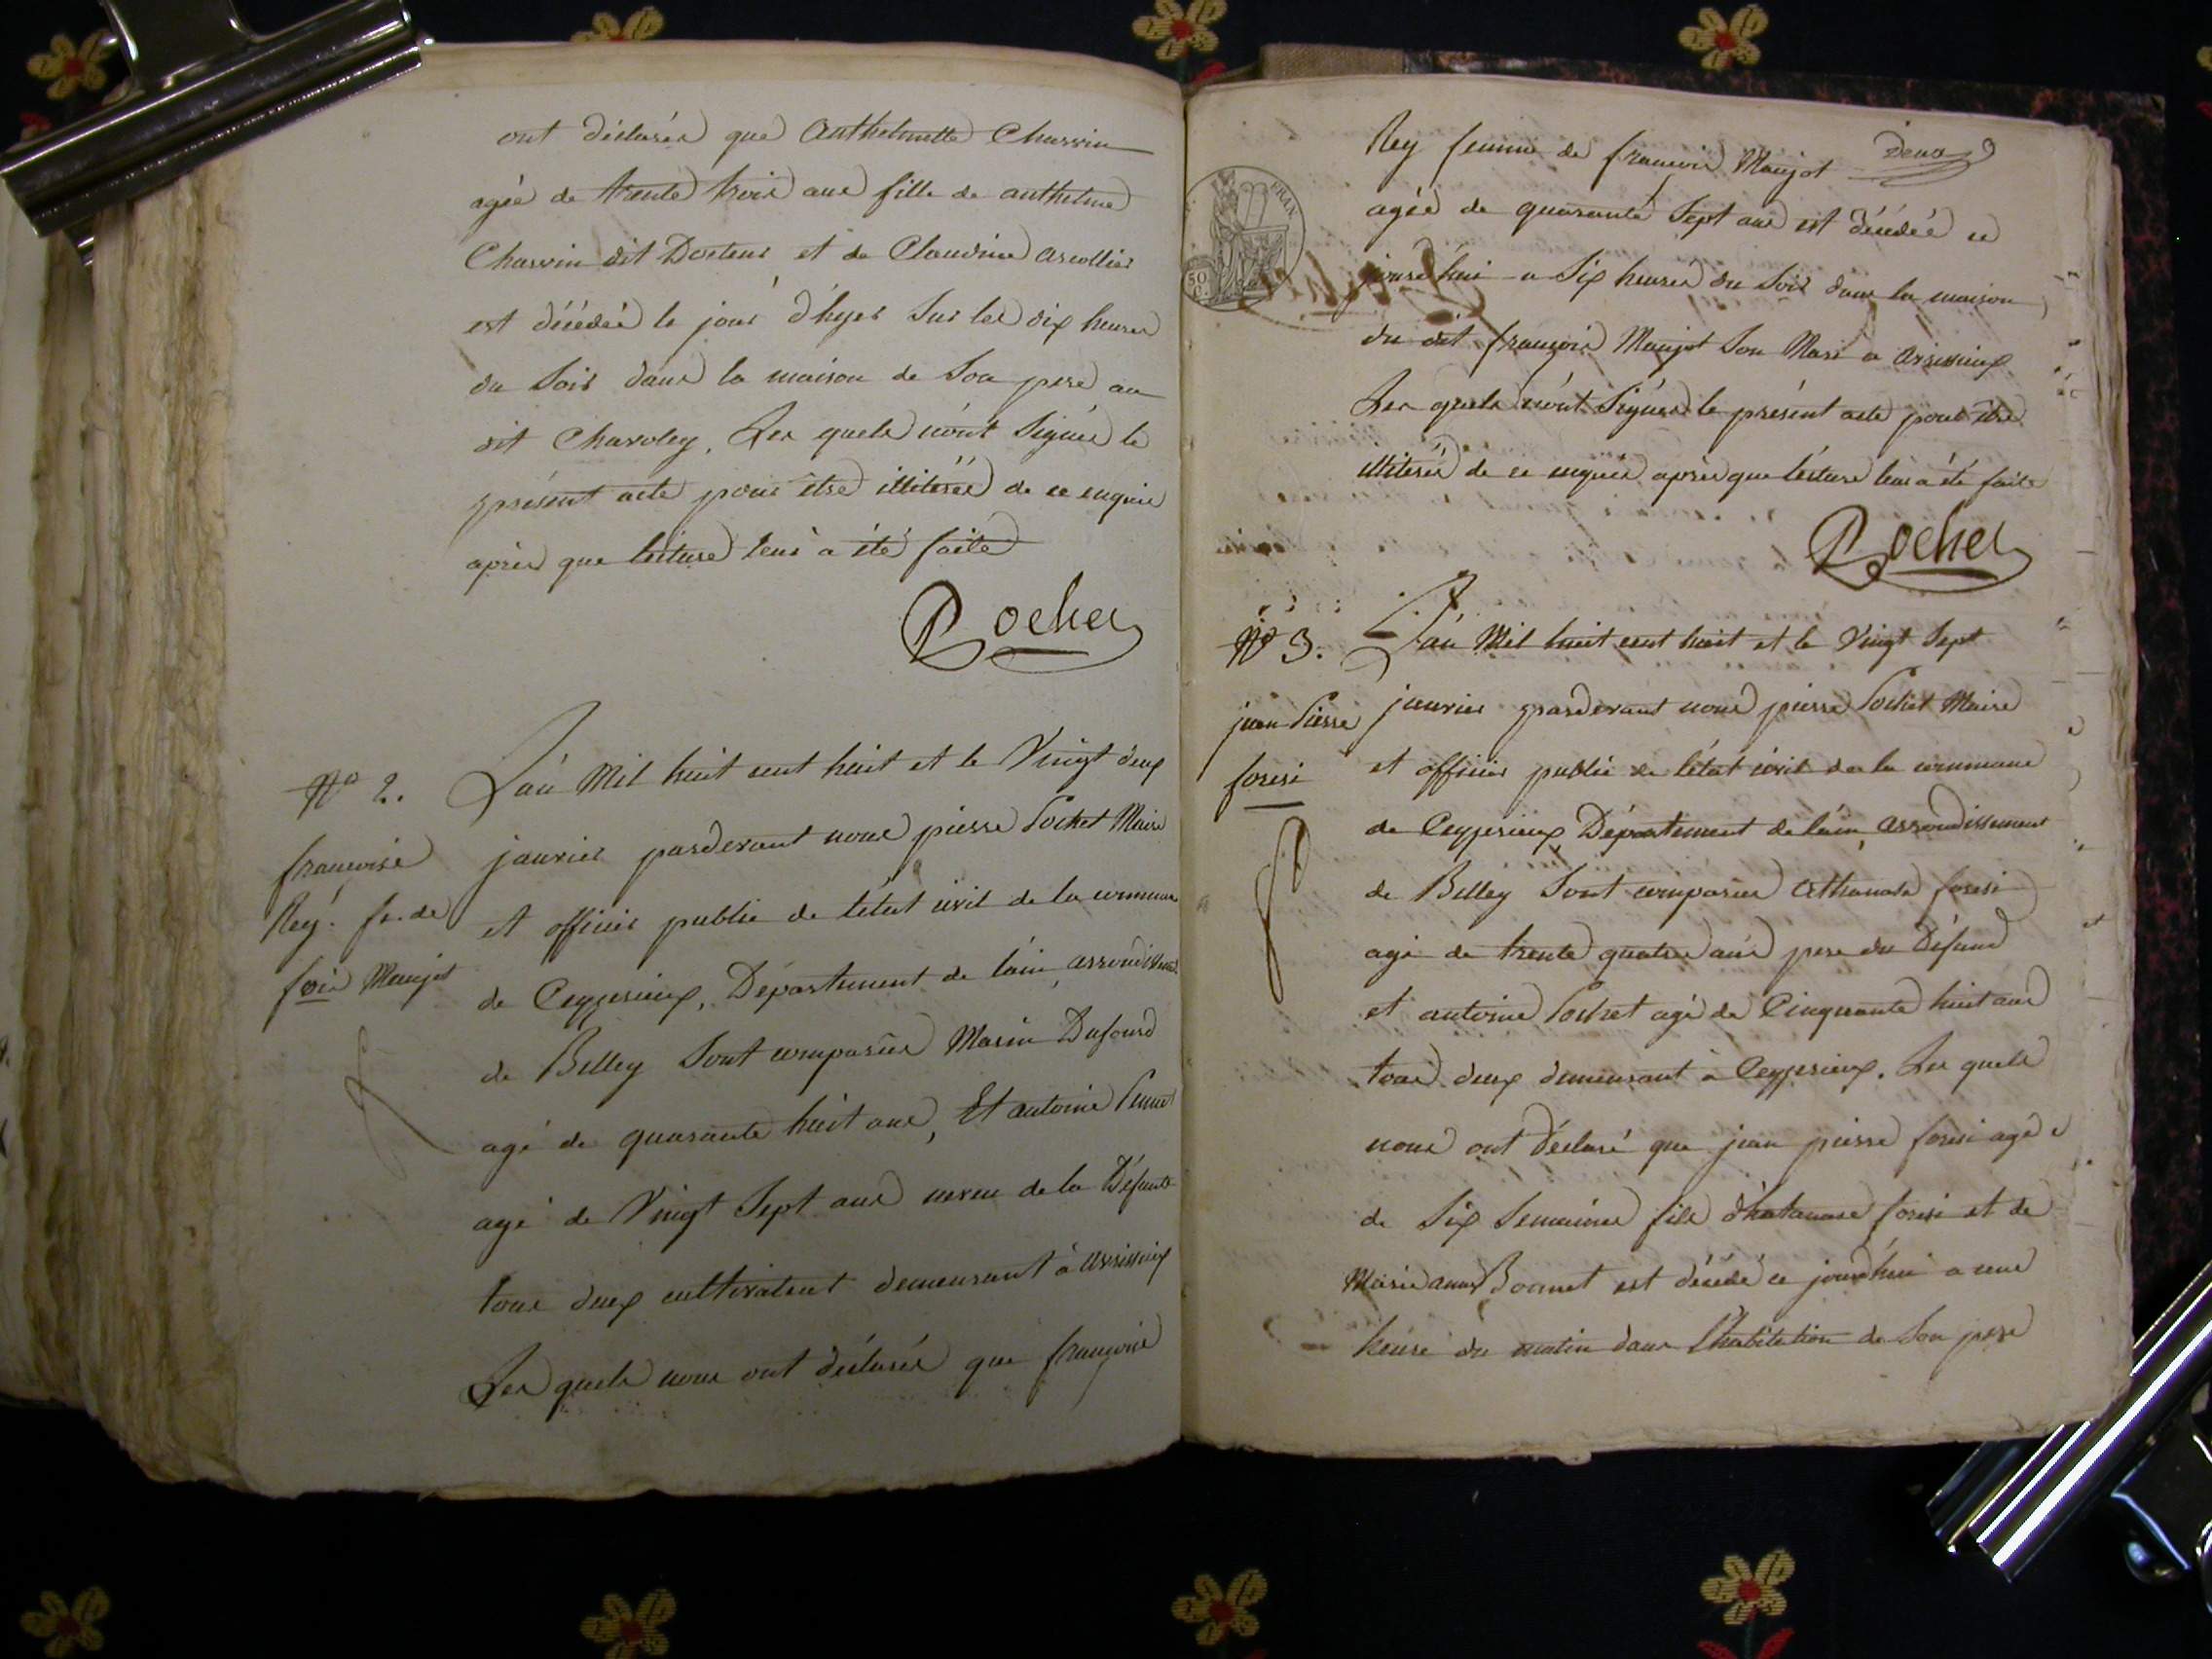 ont déclarés que Anthelmette Charvin
agée de trante trois ans fille de anthelme
Charvin dit Docteur et de Claudine
est décédée le jour d'hyer Sur les dix heures
du Soir dans la maison de Son pere au
dit Charoley. Les quels n'ont Signés le
présent acte pour être illiterés de ce enquis
après que lecture leur a été faite
Rochet
No 2. L'an Mil huit cent huit et le Vingt deux
françoise
Rey. fe. de
fois Maujot
janvier pardevant nous pierre Rochet Maire
et officier public de l'état civil de la commune
de Ceyzerieux, Département de l'ain, arrondissement
de Belley Sont comparus Marin Dufour
agé de quarante huit ans, Et antoine
agé de Vingt Sept ans neveu de la Défunte
tous deux cultivateurs demeurant à
Les quels nous ont déclarés que françoise
deux
Rey femme de françois Maujot
agée de quarante Sept ans est décédée ce
jourd'hui a Six heures du Soir dans la maison
du dit françois Maujot Son Mari a
Les quels n'ont Signés le présent acte pour être
illiterés de ce enquis après que lecture leur a été faite
FRAN
50 C.
Rochet
No 3. L'an Mil huit cent huit et le Vingt Sept
jean Pierre
foresi
janvier pardevant nous pierre Rochet Maire
et officier public de l'état civil de la commune
de Ceyzerieux Département de l'ain, arrondissement
de Belley Sont comparus Athanase foresi
agé de trente quatre ans pere du Défunt
et antoine Rochet agé de Cinquante huit ans
tous deux demeurant à Ceyzerieux. Les quels
nous ont déclaré que jean pierre foresi agé
de Six Semaines fils d'hatanase foresi et de
Marie anne Bonnet est décédé ce jourd'hui a une
heure du matin dans l'habitation de Son pere